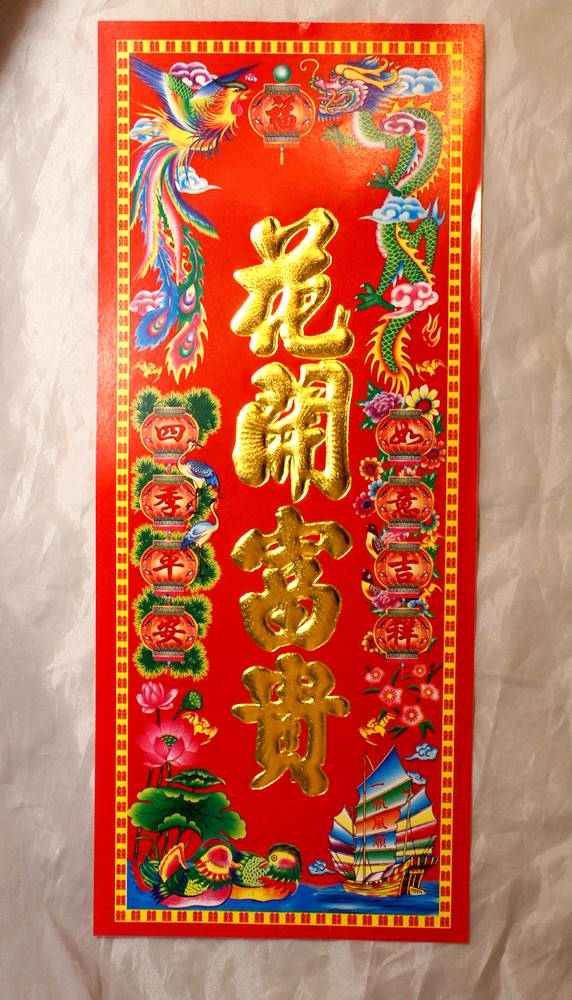 福
花開富貴
如意吉祥
四季平安
一帆風順